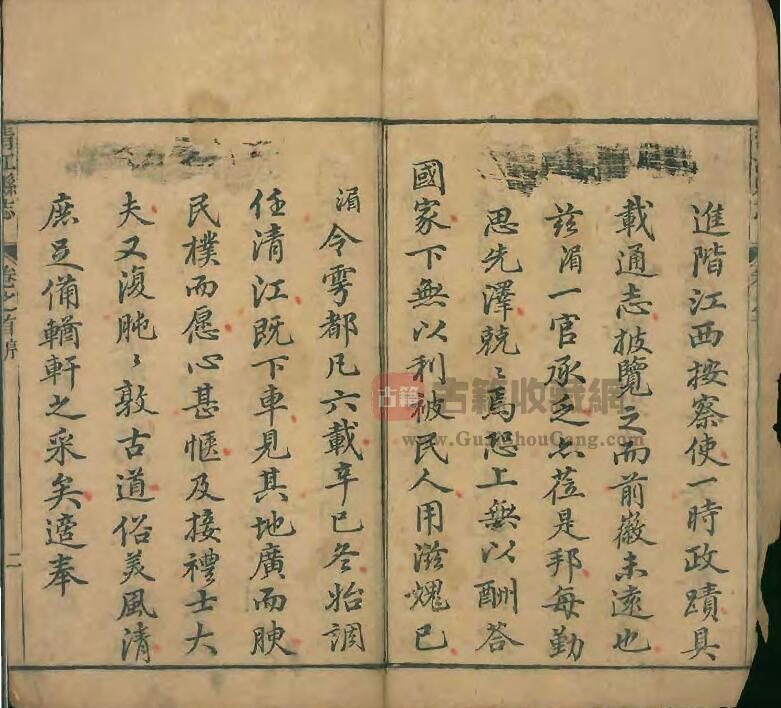 進階江西按察使一時政蹟具
載通志披覽之而前徽未遠也
茲湄一官承乏亦蒞是邦每勤
思先澤兢〻焉恐上無以酬答
國家下無以利被民人用滋愧已
湄令雩都凡六載辛巳冬始調
任清江既下車見其地廣而腴
民樸而愿心甚愜及接禮士大
夫又復肫〻敦古道俗美風清
庶足備輶軒之采矣適奉
清江縣志
卷之首
二
古籍
古籍收藏網
www.GujiShouCang.com